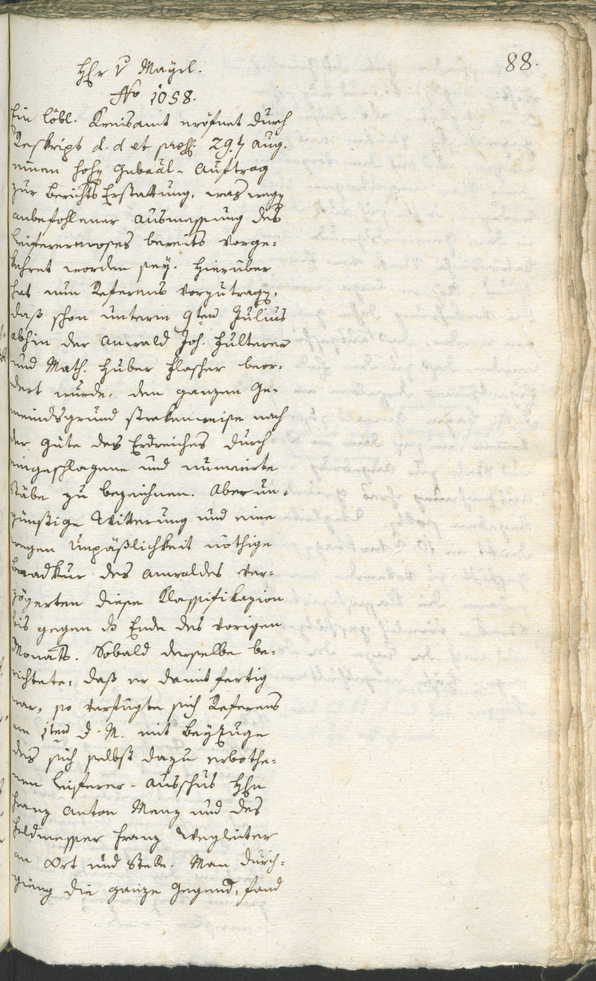 88.
Hhr v Mayrl.
No 1058.
Ein löbl. Kreisamt eröfnet durch
Reskript d. d et praes. 29t Aug.
einen hohen Gubeal-Auftrag
zur Berichts Erstattung, was wegen
anbefohlener Ausmessung des
Leiferermooses bereits vorge-
kehret worden sey. Hierüber
hat nun Referens vorzutragen,
daß schon unterm 9ten Julius
abhin der Anwald Joh. Hulterer
und Math. Huber Flosher beor-
dert wurde, den ganzen Ge-
meindsgrund strekenweise nach
der Güte des Erdreiches durch
eingeschlagene und numerirte
Stäbe zu bezeichnen. Aber un-
günstige Witterung und eine
wegen Unpäßlichkeit nöthige
Baadkur des Anwaldes ver-
zögerten diese Klassifikazion
bis gegen das Ende des vorigen
Monats. Sobald derselbe be-
richtete, daß er damit fertig
war, so verfügte sich Referens
am 1ten d. M. mit Beyzuge
des sich selbst dazu erbothe-
nen Leiferer-Ausschus Hhn
Franz Anton Menz und des
Feldmesser Franz Wegleiter
an Ort und Stelle. Man durch-
gieng die ganze Gegend, fand